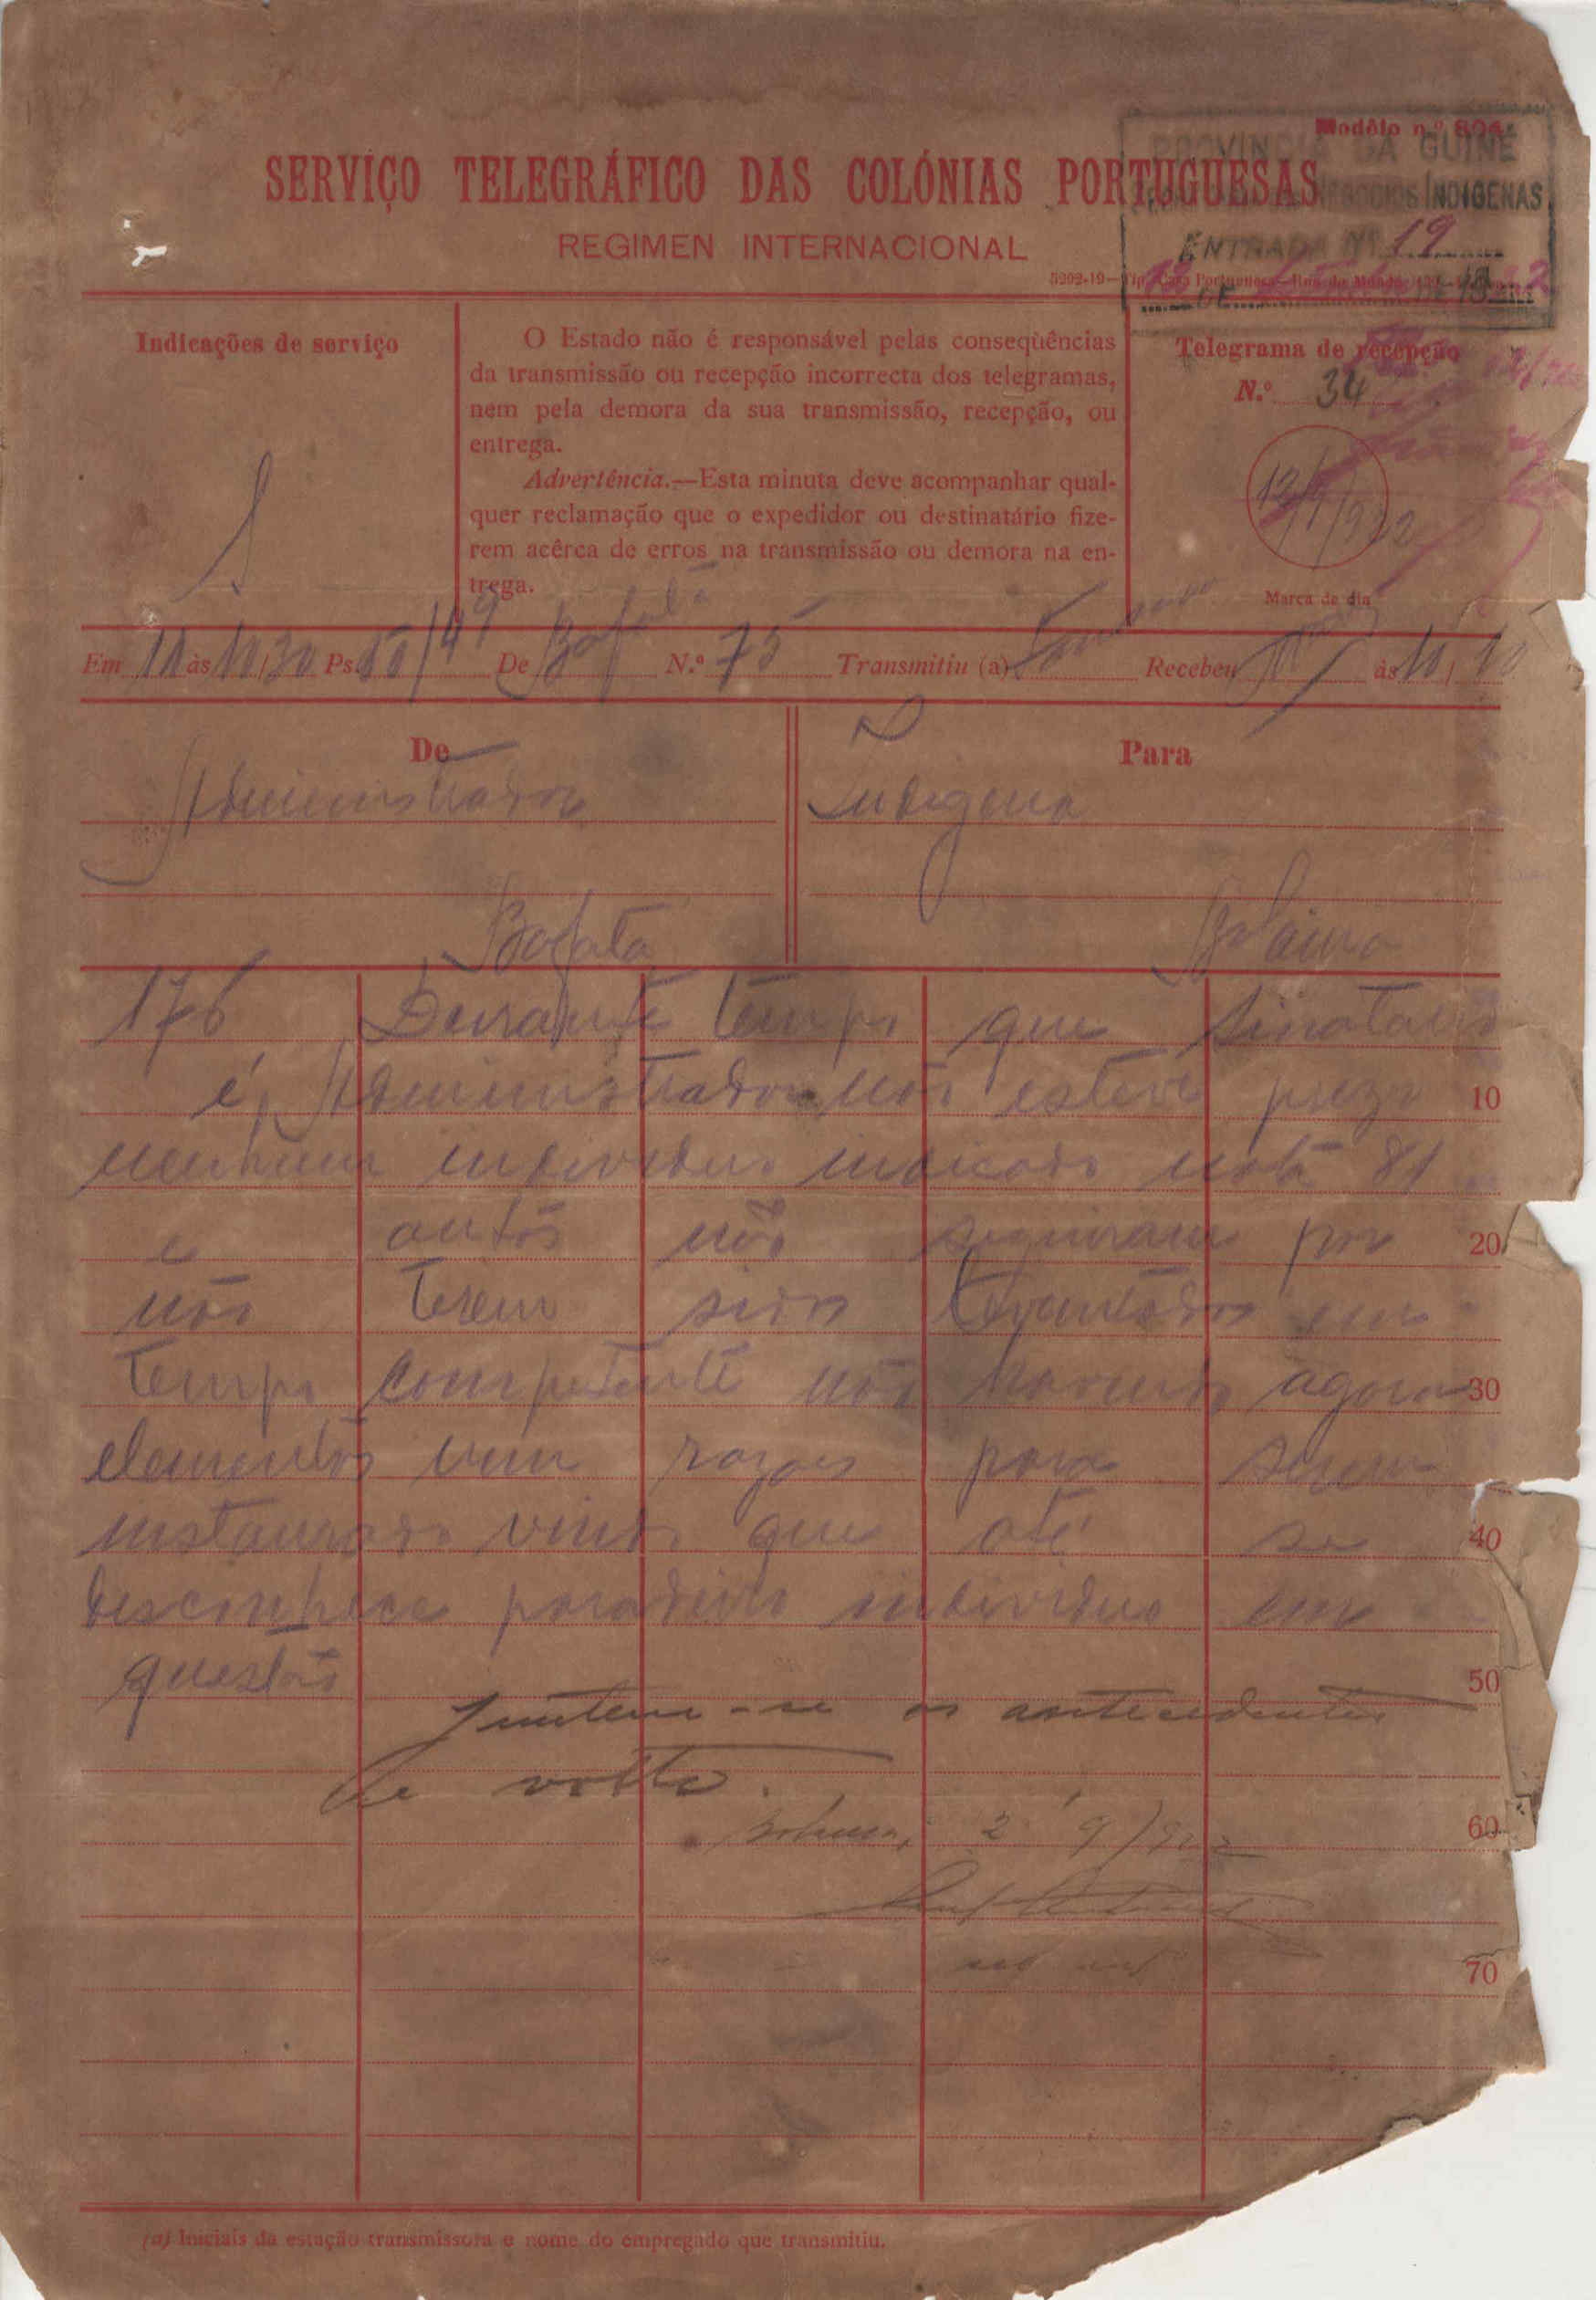 Modêlo n.º 804
PROVINCIA DA GUINÉ
NEGOCIOS INDIGENAS
ENTRADA Nº 19
12 DE DE 1922
SERVIÇO TELEGRÁFICO DAS COLÓNIAS PORTUGUESAS
REGIMEN INTERNACIONAL
Indicações de serviço
S
O Estado não é responsável pelas conseqüências
da transmissão ou recepção incorrecta dos telegramas,
nem pela demora da sua transmissão, recepção, ou
entrega.
Advertência.—Esta minuta deve acompanhar qual-
quer reclamação que o expedidor ou destinatário fize-
rem acêrca de erros na transmissão ou demora na en-
trega.
Telegrama de recepção
N.º 34
12/9/922
Marca de dia
Em 11 às 10/30 Ps. 50/49 De Bafatá N.º 75 Transmitiu (a) Recebeu às 11/10
De
Administrador
Bafata
Para
Indigena
Bolama
176 Durante tempo que
é Administrador não esteve prezo
10
nenhum individuo indicado nota 81
e autos não seguiram por
20
não terem sido levantados em
tempo competente não havendo agora
30
elementos nem razões para serem
instaurados visto que até se
40
desconhece paradeiro individuo em
questão
50
Juntem-se os antecedentes
e volte.
Bolama, 2 9/922
60
70
(a) Iniciais da estação transmissora e nome do empregado que transmitiu.